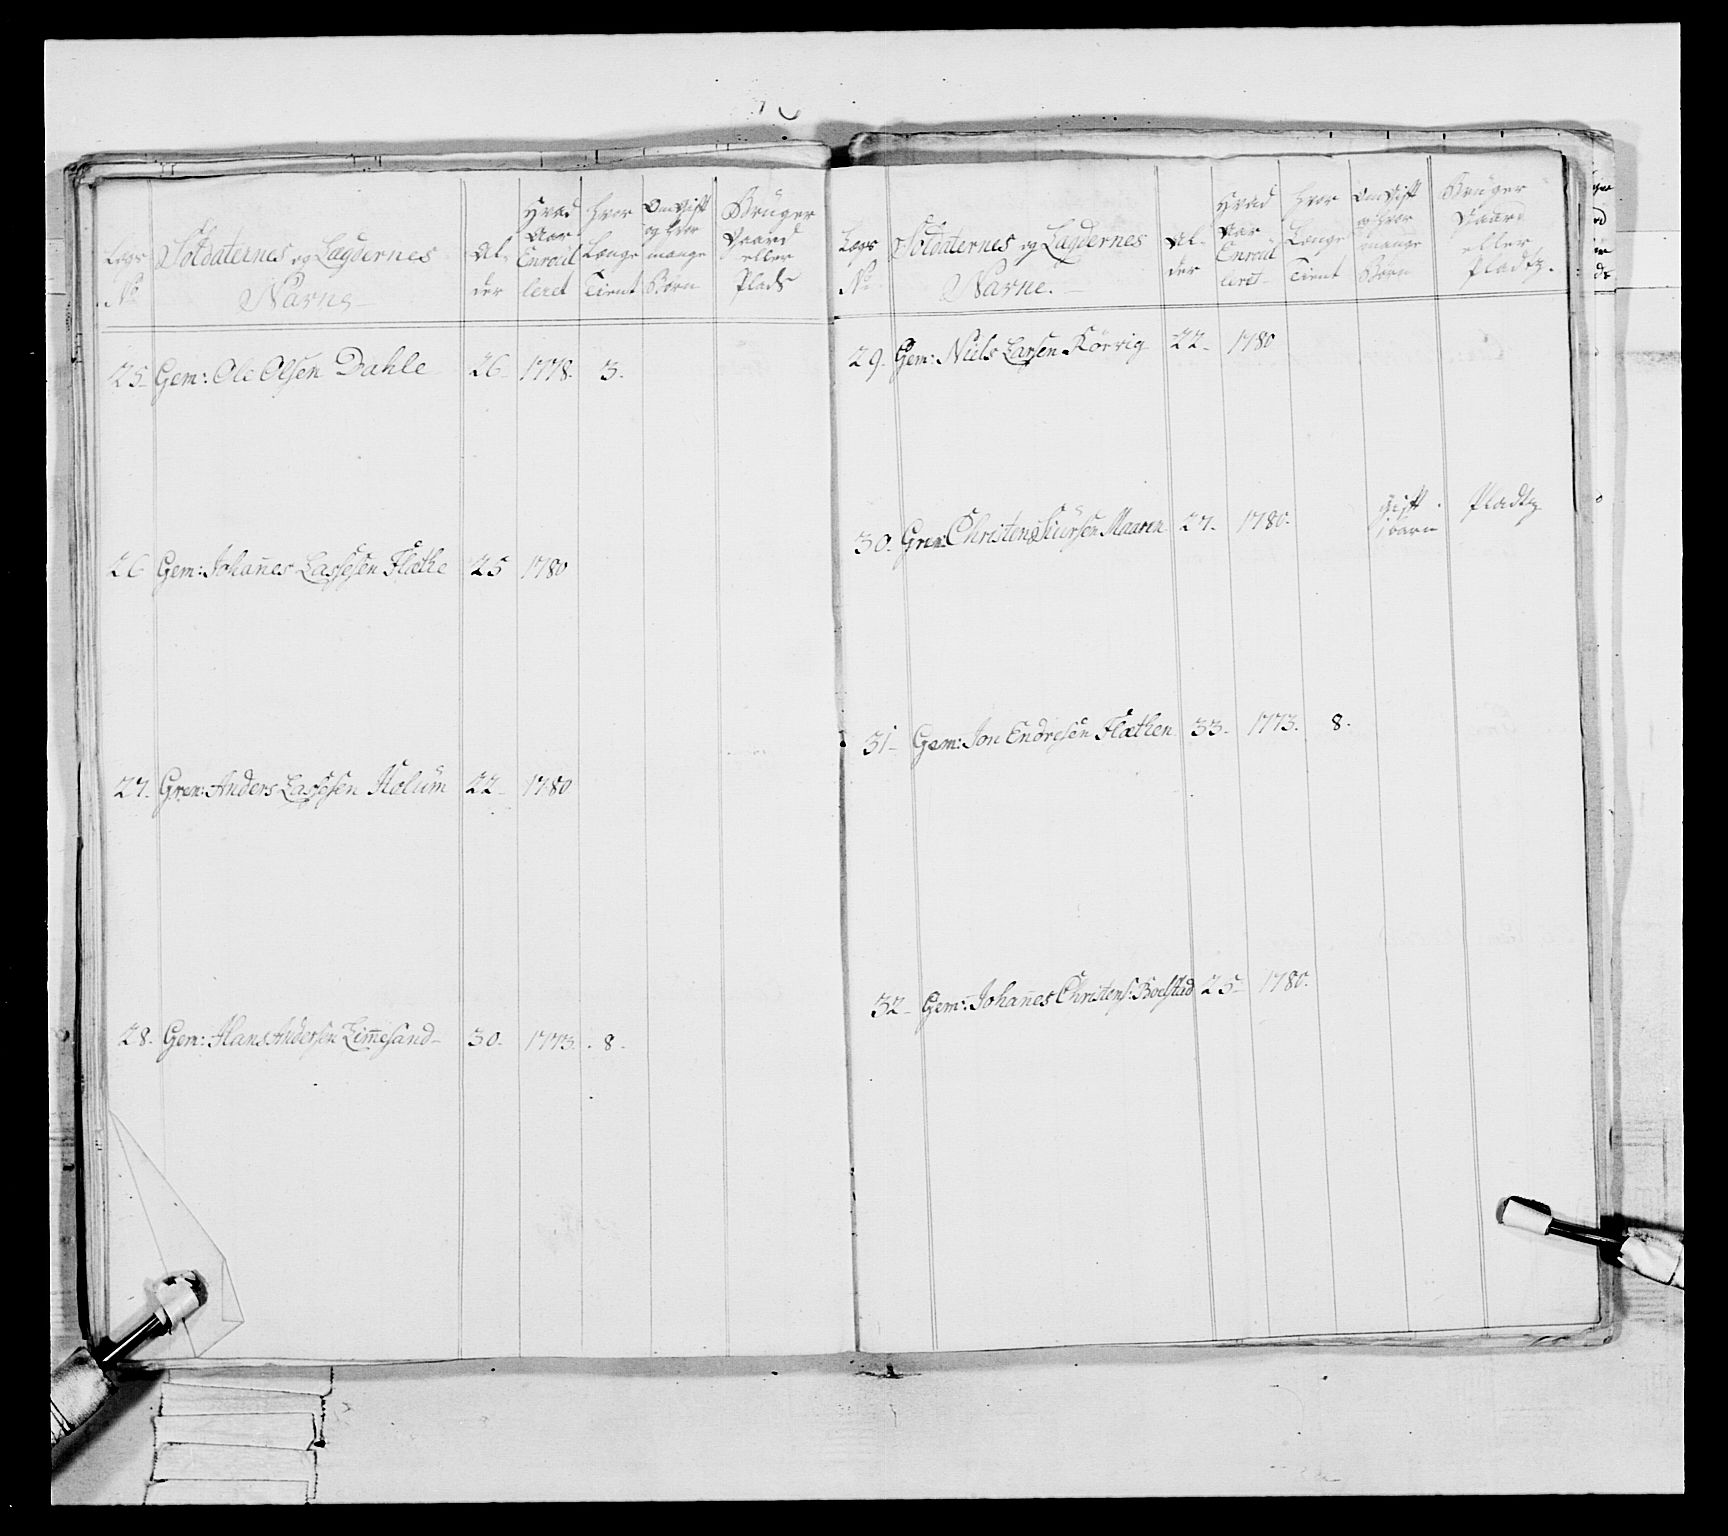 Legs No
Soldaternes og Legdernes Navne
Alder
Hvad Aar Enroulleret
hvor Længe Tient
Om Gift og hvor mange Børn
Bruger Gaard eller Plads
25. Gem: Ole Olsen Dahle 26. 1778. 3.
26 Gem: Johañes Lassesen Flæthe 25 1780
27. Gren: Anders Lassesen Holum 22. 1780
28. Gem: Hans Andersen Lim̃esand 30. 1773. 8.
Legs No
Soldaternes og Legdernes Navne.
Alder
Hvad Aar Enroulleret
hvor Længe Tient
Om Gift og hvor mange Børn
Bruger Gaard eller Pladtz.
29. Gem: Niels Larsen Körvig 22. 1780
30. Gren: Christen Siursen Maaren 27. 1780. gift 1 barn Pladtz
31. Gem: Jon Endresen Flæthen 33. 1773. 8.
32. Gem: Johañes Christens: Boelstad 25. 1780.